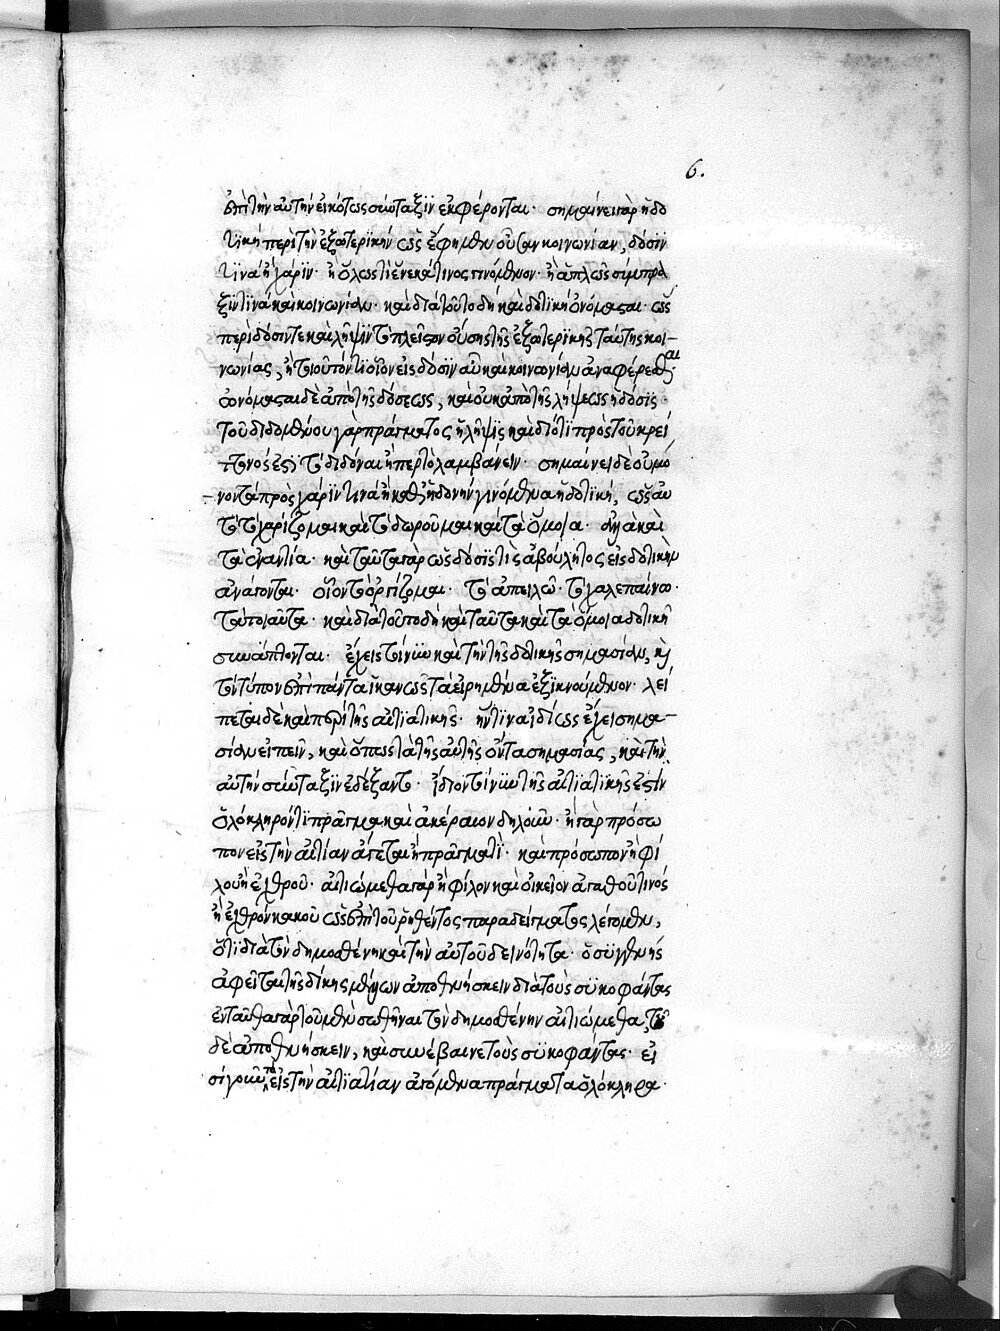 6.
ἐπὶ τὴν αὐτὴν εἰκότως σύνταξϊν ἐκφέρονται· σημαίνει γὰρ ἡ δο
τικὴ περὶ τὴν ἐξωτερϊκὴν ὡς ἔφημεν οὖσαν κοινωνίαν, δόσϊν
τϊνὰ ἢ χάρϊν· ἢ ὅλως τὶ ἕνεκά τινος γινόμενον· ἢ ἁπλῶς σύμπρα
ξϊν τϊνὰ καὶ κοινωνίαν· καὶ διατοῦτο δὴ καὶ δοτϊκὴ ὀνόμασται· ὡς
περὶ δόσιν τὲ καὶ λῆψϊν τὸ πλεῖστον οὔσης τῆς ἐξωτερϊκῆς ταύτης κοι-
νωνίας, ἢ τοιοῦτόν τϊ οἷον εἰς δόσϊν αὖ καὶ κοινωνίαν ἀναφέρεσθαι·
ὠνόμασται δὲ ἀπὸ τῆς δόσεως, καὶ οὐκ ἀπὸ τῆς λήψεως ἡ δόσϊς·
τοῦ διδομένου γὰρ πράγματος ἡ λῆψϊς καὶ διότϊ πρὸς τοῦ κρεί
ττονός ἐστϊ τὸ διδόναι ἤπερ τὸ λαμβάνειν· σημαίνει δὲ οὐ μό
νον τὰ πρὸς χάρϊν τινὰ ἢ καθ' ἡδονὴν γινόμενα ἡ δοτϊκή, ὡς αὖ
τὸ τὸ χαρίζομαι καὶ τὸ δωροῦμαι καὶ τὰ ὅμοια· ἀλλὰ καὶ
τὰ ἐναντία· καὶ ταῦτα γὰρ ὡς δόσϊς τὶς ἀβούλητος εἰς δοτικὴν
ἀνάγονται· οἷον τὸ ὀργίζομαι· τὸ ἀπειλῶ· τὸ χαλεπαίνω·
τὰ τοιαῦτα· καὶ διατοῦτο δὴ καὶ ταῦτα καὶ τὰ ὅμοια δοτικῇ
συνάπτονται· ἔχεις τοίνυν καὶ τὴν τῆς δοτικῆς σημασίαν, καὶ
τὸν τύπον ἐπὶ πάντα ἱκανῶς τὰ εἰρημένα ἐξϊκνούμενον· λεί
πεται δὲ καὶ περὶ τῆς αἰτϊατικῆς· ἥντϊνα ἰδίως ἔχει σημα-
σίαν εἰπεῖν, καὶ ὅπως τὰ τῆς αὐτῆς ὄντα σημασίας, καὶ τὴν
αὐτὴν σύνταξϊν ἐδέξαντο· ἴδιον τοίνυν τῆς αἰτϊατϊκῆς ἐστὶν
ὁλόκληρόν τϊ πρᾶγμα καὶ ἀκέραιον δηλοῦν· ἢ γὰρ πρόσω
πον εἰς τὴν αἰτίαν ἄγεται ἢ πράγματϊ· καὶ πρόσωπον ἢ φί
λου ἢ ἐχθροῦ· αἰτιώμεθα γὰρ ἢ φίλον καὶ οἰκεῖον ἀγαθοῦ τινός
ἢ ἐχθρὸν κακοῦ ὡς ἐπὶ τοῦ ῥηθέντος παραδείγματος λέγομεν,
ὅτϊ διὰ τὸν δημοσθένην καὶ τὴν αὐτοῦ δεινότητα· ὁ συγγενής
ἀφεῖται τῆς δίκης μέλλων ἀποθνήσκειν διὰ τοὺς συκοφάντας
ἐνταῦθα γὰρ τοῦ μὲν σωθῆναι τὸν δημοσθένην αἰτιώμεθα, τοῦ
δὲ ἀποθνήσκειν, καὶ συνέβαινε τοὺς συκοφάντας· εἰ
σὶ γοῦν τὰ εἰς τὴν αἰτϊατίαν ἀγόμενα πράγματα ὁλόκληρα·